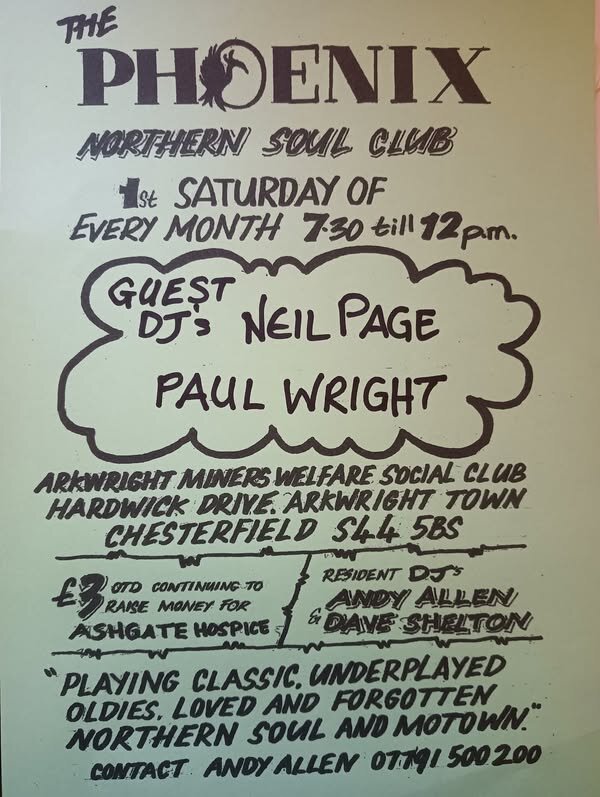 THE
PHOENIX
NORTHERN SOUL CLUB
1st SATURDAY OF
EVERY MONTH 7.30 till 12 p.m.
GUEST
DJ's NEIL PAGE
PAUL WRIGHT
ARKWRIGHT MINERS WELFARE SOCIAL CLUB
HARDWICK DRIVE. ARKWRIGHT TOWN
CHESTERFIELD S44 5BS
£3 OTD CONTINUING TO
RAISE MONEY FOR
ASHGATE HOSPICE
RESIDENT DJ's
ANDY ALLEN
& DAVE SHELTON
"PLAYING CLASSIC, UNDERPLAYED
OLDIES. LOVED AND FORGOTTEN
NORTHERN SOUL AND MOTOWN."
CONTACT ANDY ALLEN 07791 500 200